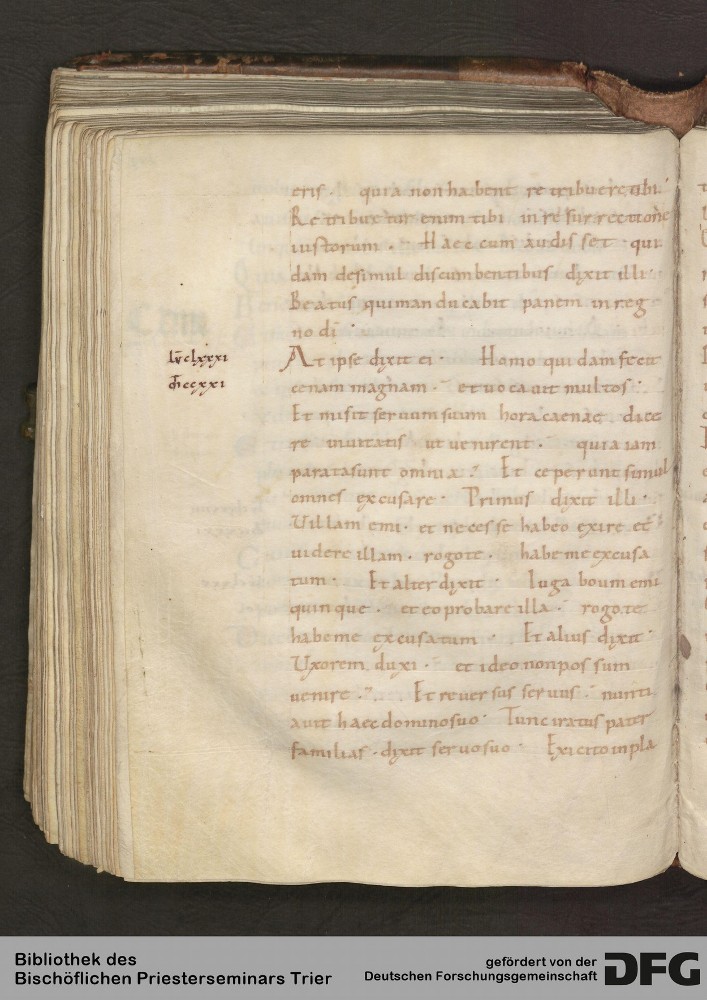 eris . quia non habent retribuere tibi .
Retribuetur enim tibi in resurrectione
iustorum . Haec cum audisset . qui
dam de simul discumbentibus dixit illi .
Beatus qui manducabit panem in reg
no di .
lv clxxxi
At ipse dixit ei . Homo quidam fecit
m ccxxi
cenam magnam . et vocavit multos .
Et misit servum suum hora caenae dice
re invitatis ut venirent . quia iam
parata sunt omnia . Et ceperunt simul
omnes excusare . Primus dixit illi .
Villam emi . et necesse habeo exire et
videre illam . rogo te . habe me excusa
tum . Et alter dixit . Iuga boum emi
quinque . et eo probare illa . rogo te
habe me excusatum . Et alius dixit .
Uxorem duxi . et ideo non possum
venire . Et reversus servus . nunti
avit haec domino suo . Tunc iratus pater
familias . dixit servo suo . Exi cito in pla
Bibliothek des
Bischöflichen Priesterseminars Trier
gefördert von der
Deutschen Forschungsgemeinschaft
DFG